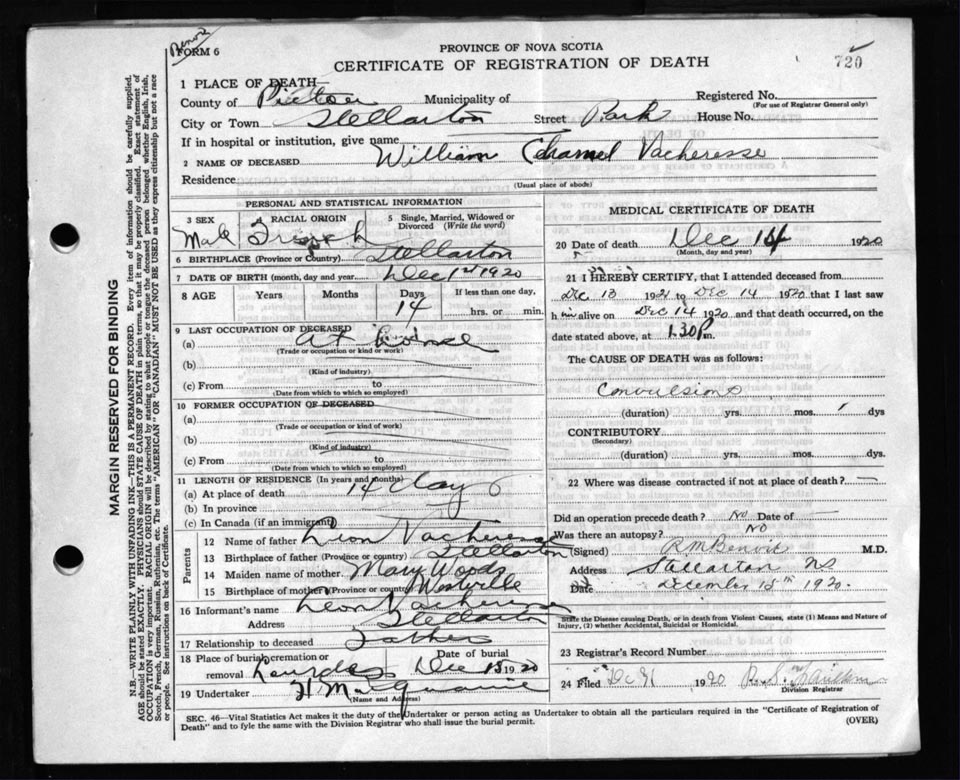 Benoit
FORM 6
PROVINCE OF NOVA SCOTIA
CERTIFICATE OF REGISTRATION OF DEATH
720
1 PLACE OF DEATH—
County of Pictou Municipality of Registered No.
(For use of Registrar General only)
City or Town Stellarton Street Park House No.
If in hospital or institution, give name
2 NAME OF DECEASED William Vacheresse
Residence
(Usual place of abode)
PERSONAL AND STATISTICAL INFORMATION
3 SEX 4 RACIAL ORIGIN 5 Single, Married, Widowed or Divorced (Write the word)
Male French
6 BIRTHPLACE (Province or Country) Stellarton
7 DATE OF BIRTH (month, day and year) Dec 1st 1920
8 AGE Years Months Days If less than one day,
14 hrs. or min.
9 LAST OCCUPATION OF DECEASED
(a) At home
(Trade or occupation or kind or work)
(b)
(Kind of industry)
(c) From to
(Date from which to which so employed)
10 FORMER OCCUPATION OF DECEASED
(a)
(Trade or occupation or kind of work)
(b)
(Kind of industry)
(c) From to
(Date from which to which employed)
11 LENGTH OF RESIDENCE (In years and months)
(a) At place of death 14 days
(b) In province
(c) In Canada (if an immigrant)
Parents
12 Name of father Leon Vacheresse
13 Birthplace of father (Province or country) Stellarton
14 Maiden name of mother Mary Woods
15 Birthplace of mother (Province or country) Westville
16 Informant's name Leon Vacheresse
Address Stellarton
17 Relationship to deceased Father
18 Place of burial cremation or removal Lourdes Date of burial Dec 15 1920
19 Undertaker
(Name and Address)
MEDICAL CERTIFICATE OF DEATH
20 Date of death Dec 14 1920
(Month, day and year)
21 I HEREBY CERTIFY, that I attended deceased from
Dec 13 1921 to Dec 14 1920 that I last saw
him alive on Dec 14 1920 and that death occurred, on the
date stated above, at 1.30 P.m.
The CAUSE OF DEATH was as follows:
Convulsions
(duration) yrs. mos. 1 dys
CONTRIBUTORY
(Secondary)
(duration) yrs. mos. dys.
22 Where was disease contracted if not at place of death? —
Did an operation precede death? No Date of —
Was there an autopsy? NO
(Signed) R M Benvie M.D.
Address Stellarton NS
Date December 15th 1920.
State the Disease causing Death, or in Death from Violent Causes, state (1) Means and Nature of
Injury, (2) whether Accidental, Suicidal or Homicidal.
23 Registrar's Record Number
24 Filed 1920
Division Registrar
SEC. 46—Vital Statistics Act makes it the duty of the Undertaker or person acting as Undertaker to obtain all the particulars required in the "Certificate of Registration of
Death" and to fyle the same with the Division Registrar who shall issue the burial permit. (OVER)
MARGIN RESERVED FOR BINDING
N.B.—WRITE PLAINLY WITH UNFADING INK—THIS IS A PERMANENT RECORD. Every item of information should be carefully supplied.
AGE should be stated EXACTLY. PHYSICIANS should STATE CAUSE OF DEATH in plain terms, so that it may be properly classified. Exact statement of
OCCUPATION is very important. RACIAL ORIGIN will be described by stating to what people or tongue the deceased person belonged whether English, Irish,
Scotch, French, German, Russian, Ruthenian, etc. The terms "AMERICAN" OR "CANADIAN" MUST NOT BE USED as they express citizenship but not a race
or people. See instructions on back of Certificate.